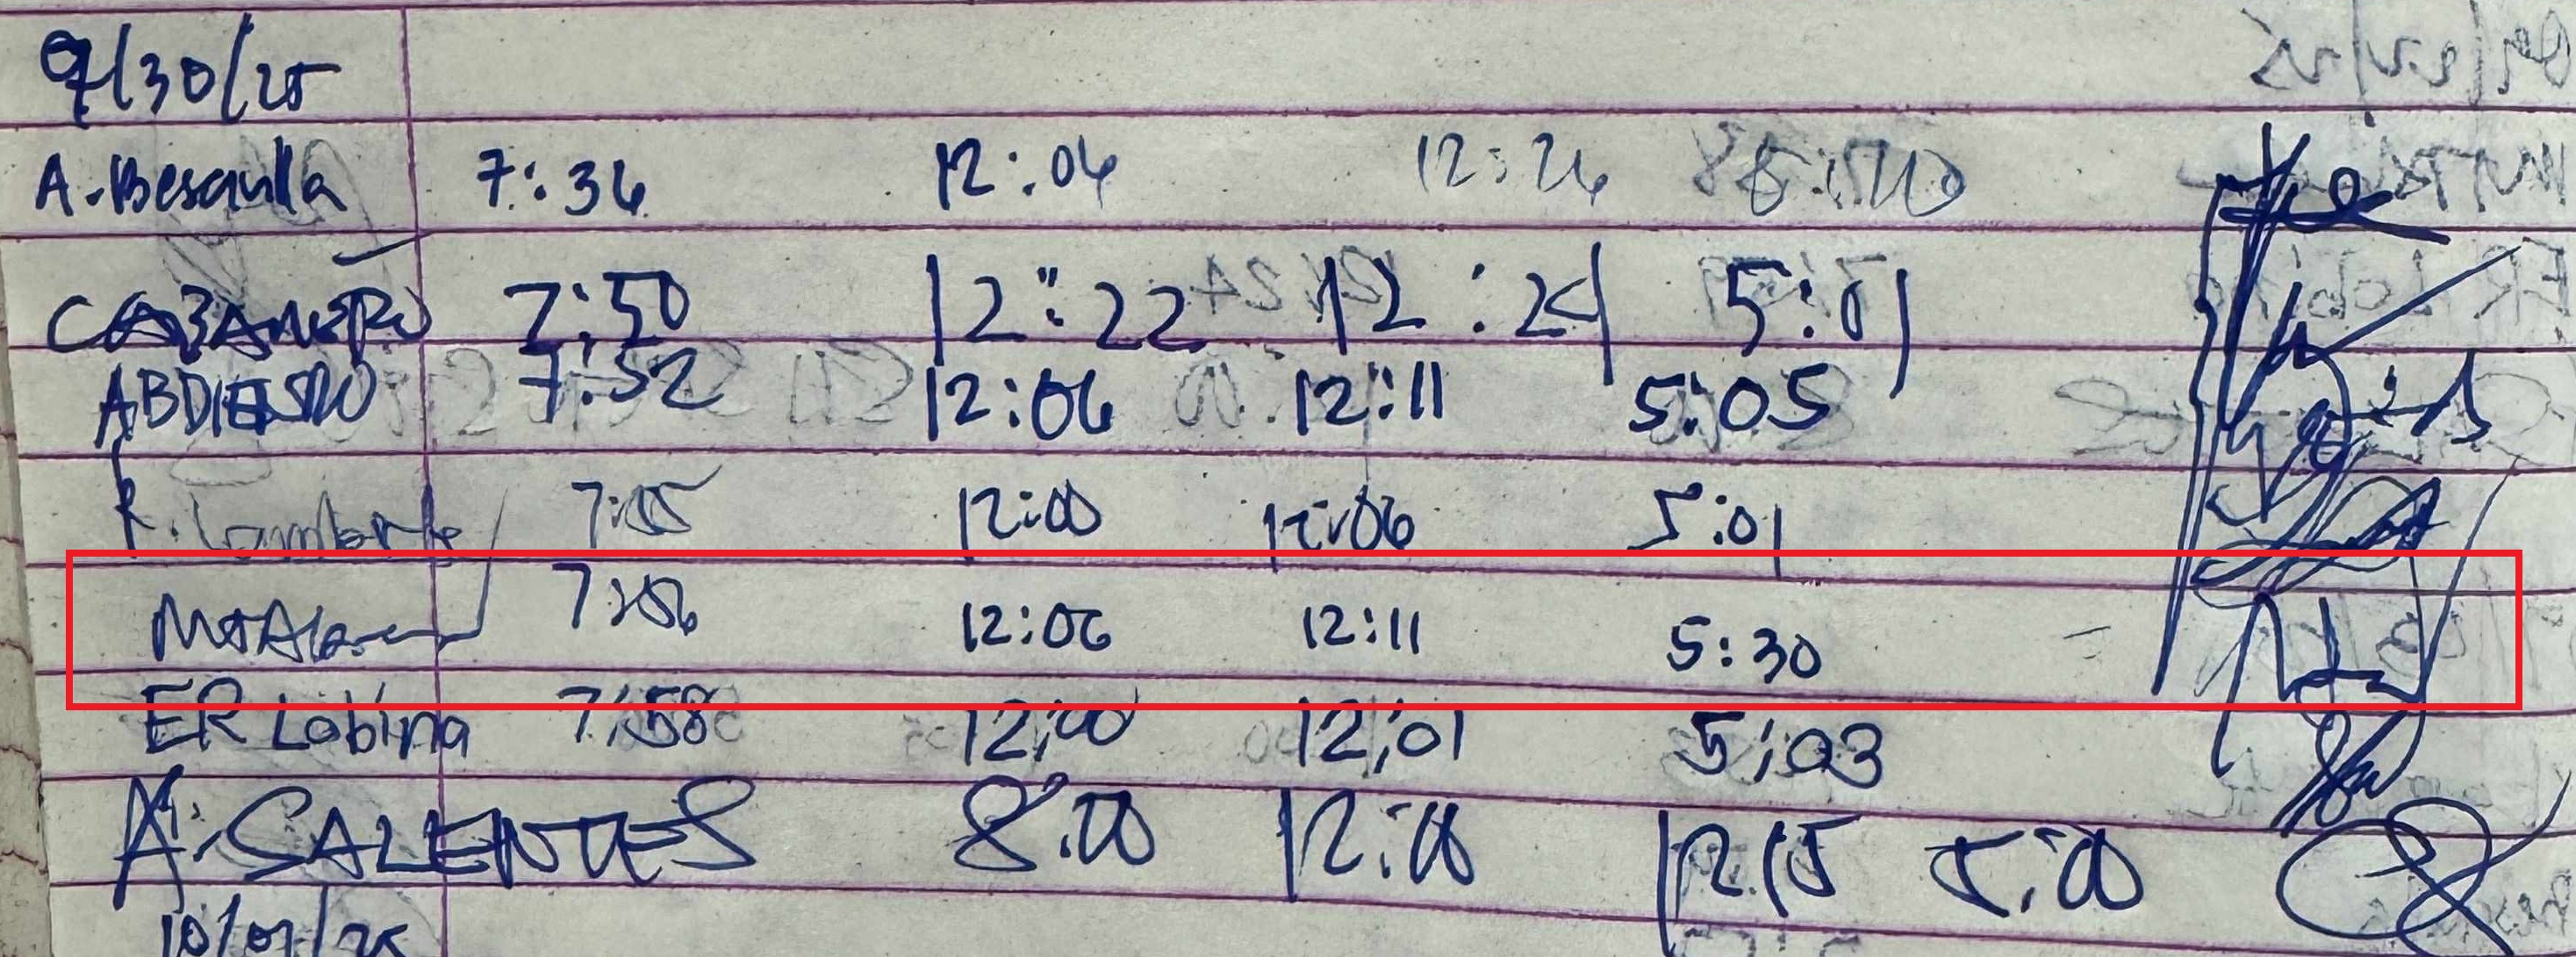 9/30/25
A. Bescaulla 7:36 12:04 12:26 5:10
CABANERO 7:50 12:22 12:24 5:01
ABDIESRO 7:52 12:06 12:11 5:05
R. 7:55 12:00 12:06 5:01
12:06 12:11 5:30
ER Labina 7:58 12:00 12:01 5:03
A. SALENTES 8:00 12:00 12:15 5:00
10/01/25